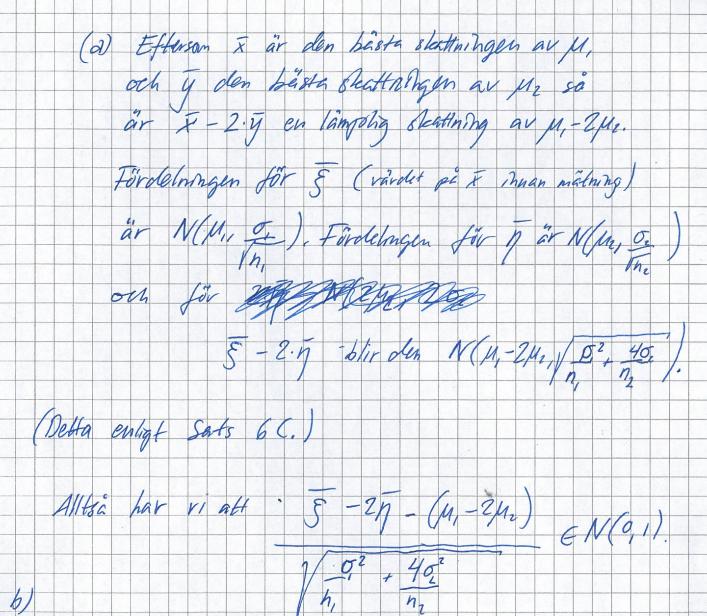 (a) Eftersom x̄ är den bästa skattningen av μ₁
och ȳ den bästa skattningen av μ₂ så
är x̄ - 2·ȳ en lämplig skattning av μ₁-2μ₂.
Fördelningen för ξ̄ (värdet på x̄ innan mätning)
är N(μ₁, σ₁/√n₁). Fördelningen för η̄ är N(μ₂, σ₂/√n₂)
och för
ξ̄ - 2·η̄ blir den N(μ₁-2μ₂, √(σ₁²/n₁ + 4σ₂/n₂)).
(Detta enligt Sats 6C.)
Alltså har vi att (ξ̄ - 2η̄ - (μ₁-2μ₂)) / √(σ₁²/n₁ + 4σ₂²/n₂) ∈ N(0,1).
b)